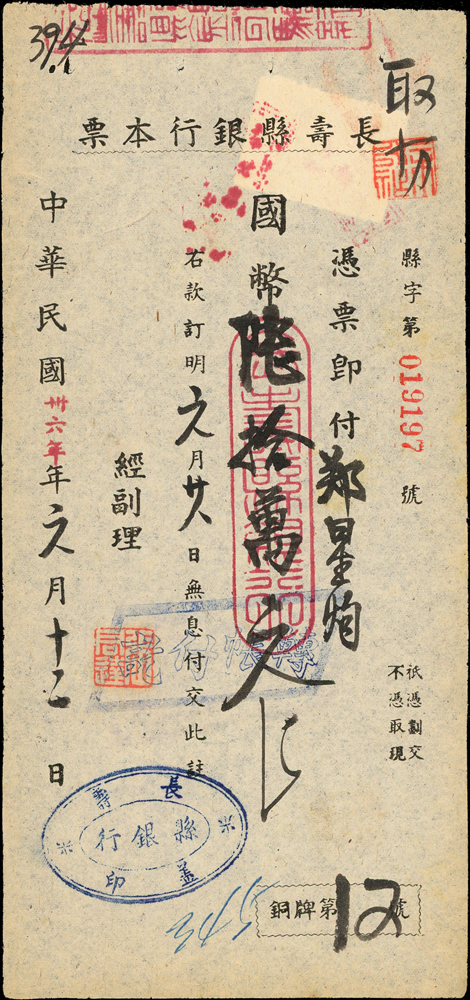 394
取
十万
長壽縣銀行本票
縣字第 019197 號
祇憑劃交
不憑取現
憑票即付鄭星灼
國幣陸拾萬元
右款訂明元月廿八日無息付交此註
經副理
中華民國卅六年年元月十二日
轉帳付訖
長壽
縣銀行
蓋印
銅牌第12號